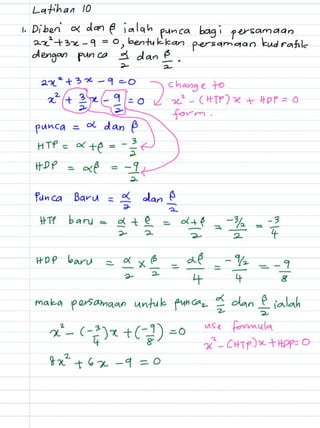 Latihan 10
1. Diberi α dan β ialah punca bagi persamaan
2x² + 3x - 9 = 0, bentukkan persamaan kuadratik
dengan punca α/2 dan β/2.
2x² + 3x - 9 = 0
change to
x² + 3/2 x - 9/2 = 0
x² - (HTP)x + HDP = 0
form.
punca = α dan β
HTP = α + β = -3/2
HDP = αβ = -9/2
Punca Baru = α/2 dan β/2
HTP baru = α/2 + β/2 = α+β/2 = -3/2/2 = -3/4
HDP baru = α/2 × β/2 = αβ/4 = -9/2/4 = -9/8
maka persamaan untuk punca2 α/2 dan β/2 ialah
x² - (-3/4)x + (-9/8) = 0
use formula
x² - (HTP)x + HDP = 0
8x² + 6x - 9 = 0